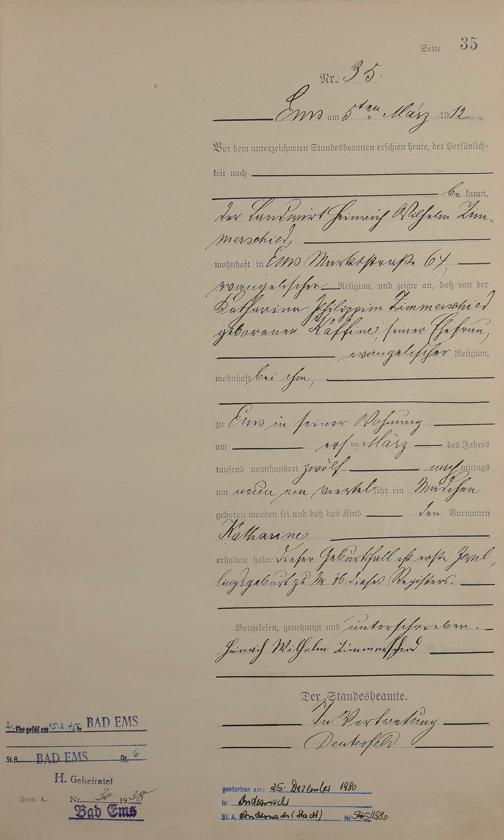 Seite 35
Nr. 35.
Ems am 5ten März 1912
Vor dem unterzeichneten Standesbeamten erschien heute, der Persönlich-
keit nach
be kannt,
der Landwirt Heinrich Wilhelm Zim-
merschied,
wohnhaft in Ems Marktstraße 64,
evangelischer Religion, und zeigte an, daß von der
Katharina Philippine Zimmerschied
geborenen, seiner Ehefrau,
evangelischer Religion,
wohnhaft bei ihm,
zu Ems in seiner Wohnung
am ersten März des Jahres
tausend neunhundert zwölf nachmittags
um neun ein viertel Uhr ein Mädchen
geboren worden sei und daß das Kind den Vornamen
Katharine
erhalten habe. Dieser Geburtsfall ist erste Zwil-
lingsgeburt zu Nr. 36 dieses Registers.
Vorgelesen, genehmigt und unterschrieben.
Heinrich Wilhelm Zimmerschied
Der Standesbeamte.
In Vertretung
2. Ehe geschl. am 15.2.45 in BAD EMS
St.A. BAD EMS Nr. 6
H. Geheiratet
Form. A. Nr. 30 1938
Bad Ems
gestorben am: 25. Dezember 1980
in Andernach
St. A. Andernach (Stadt) Nr 545/1980